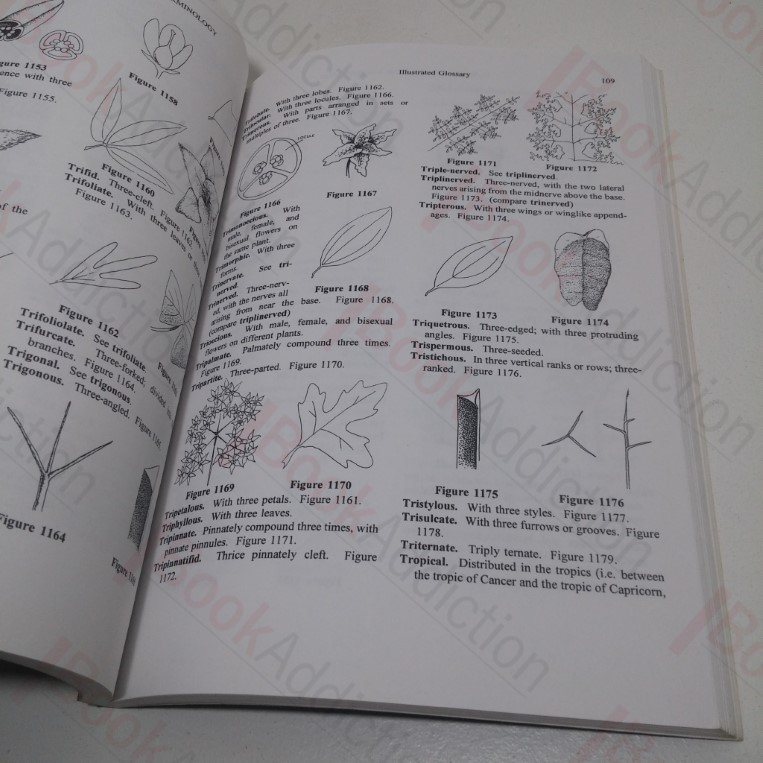 ERMINOLOGY
Figure 1153
ence with three
Figure 1155.
Figure 1158
Figure 1160
Trifid. Three-cleft. Figure 1162.
Trifoliate. With three leaves or
Figure 1163.
of the
Figure 1162
Trifoliolate. See trifoliate.
Trifurcate. Three-forked; divided into
branches. Figure 1164.
Trigonal. See trigonous.
Trigonous. Three-angled. Figure 1165
Figure 1164
Illustrated Glossary
109
Trilobate. With three lobes. Figure 1162.
Trilocular. With three locules. Figure 1166.
Trimerous. With parts arranged in sets or
multiples of three. Figure 1167.
locule
Figure 1166
Figure 1167
Trimonoecious. With
male, female, and
bisexual flowers on
the same plant.
Trimorphic. With three
forms.
Trinervate. See tri-
nerved.
Trinerved. Three-nerv-
ed, with the nerves all
arising from near the base. Figure 1168.
(compare triplinerved)
Figure 1168
Trioecious. With male, female, and bisexual
flowers on different plants.
Tripalmate. Palmately compound three times.
Figure 1169.
Tripartite. Three-parted. Figure 1170.
Figure 1169
Figure 1170
Tripetalous. With three petals. Figure 1161.
Triphyllous. With three leaves.
Tripinnate. Pinnately compound three times, with
pinnate pinnules. Figure 1171.
Tripinnatifid. Thrice pinnately cleft. Figure
1172.
Figure 1171
Figure 1172
Triple-nerved. See triplinerved.
Triplinerved. Three-nerved, with the two lateral
nerves arising from the midnerve above the base.
Figure 1173. (compare trinerved)
Tripterous. With three wings or winglike append-
ages. Figure 1174.
Figure 1173
Figure 1174
Triquetrous. Three-edged; with three protruding
angles. Figure 1175.
Trispermous. Three-seeded.
Tristichous. In three vertical ranks or rows; three-
ranked. Figure 1176.
Figure 1175
Figure 1176
Tristylous. With three styles. Figure 1177.
Trisulcate. With three furrows or grooves. Figure
1178.
Triternate. Triply ternate. Figure 1179.
Tropical. Distributed in the tropics (i.e. between
the tropic of Cancer and the tropic of Capricorn,
BookAddiction